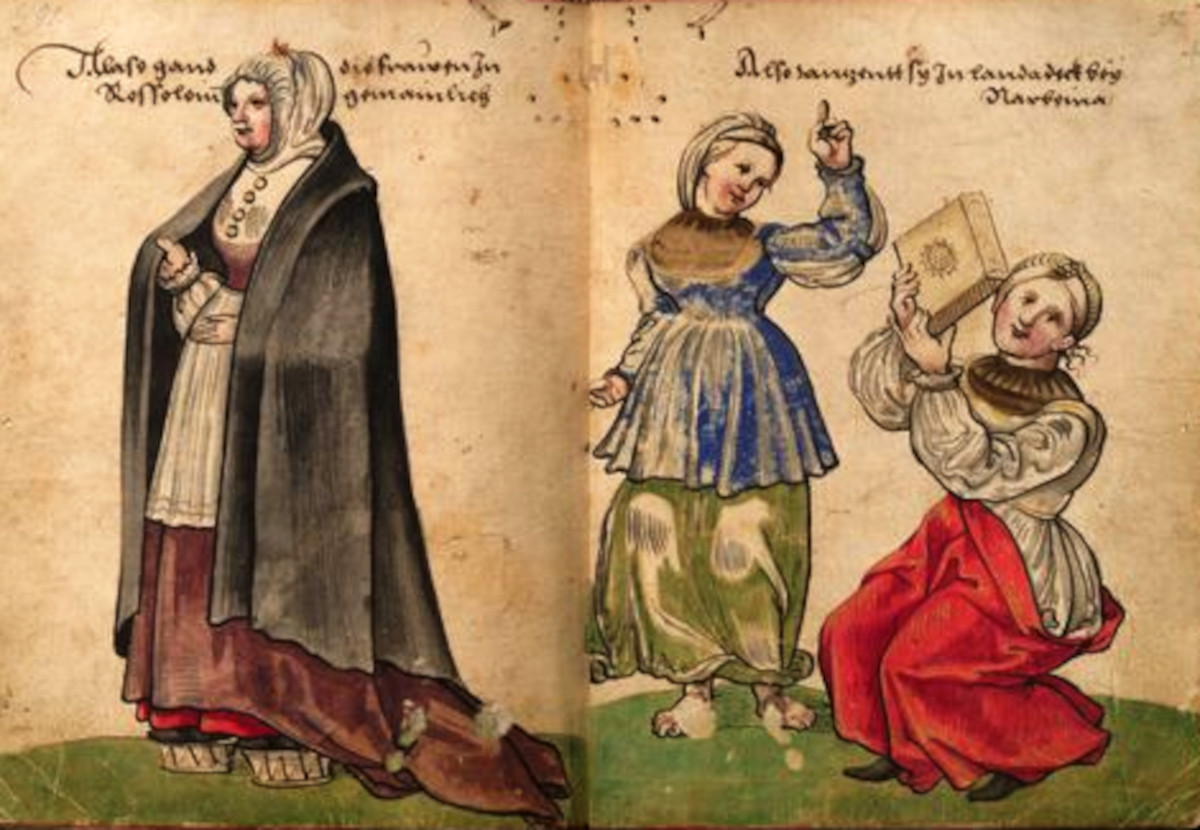 Also gand die frawen In
Rossolon gemainlich
Also tanzentt sy In landadeck bey
Narbeina